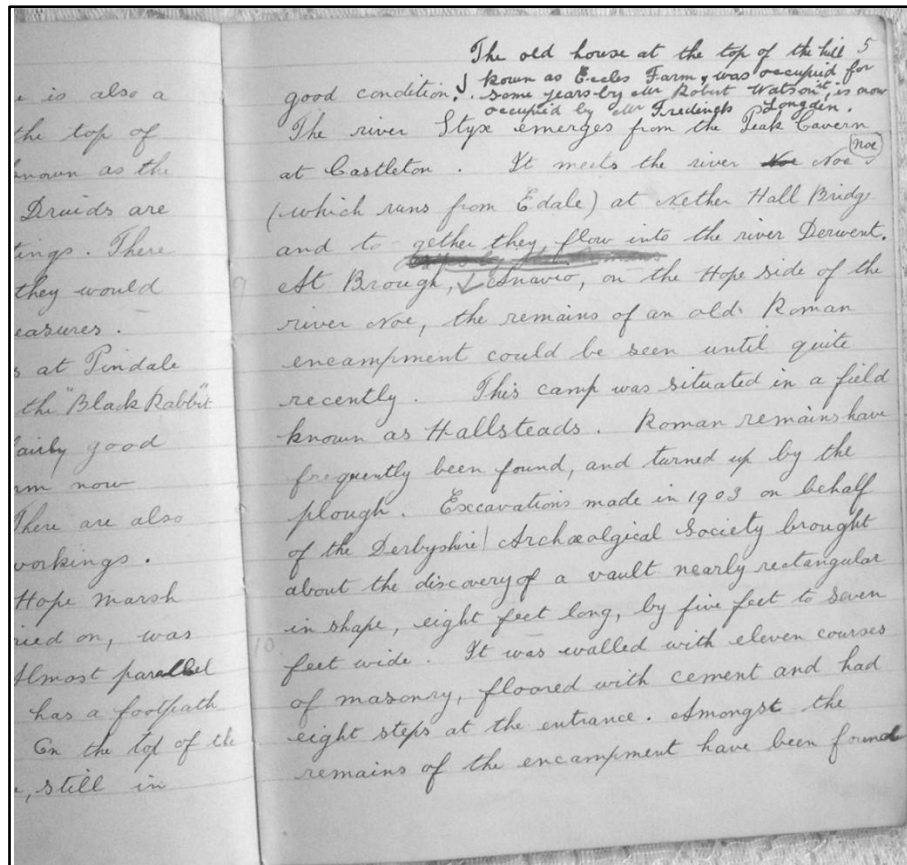 e is also a
the top of
known as the
Druids are
tings. There
they would
easures.
s at Pindale
the "Black Rabbit"
fairly good
rm now
There are also
workings.
Hope Marsh
ried on, was
Almost parallel
has a footpath
On the top of the
, still in
5
The old house at the top of the hill
kown as Eccles Farm, was occupied for
some years by Mr Robert Watson, is now
occupied by Mr Frederick Longden.
good condition.
The river Styx emerges from the Peak Cavern
at Castleton. It meets the river Noe Noe
noe
(which runs from Edale) at Nether Hall Bridge
and to gether they flow into the river Derwent.
9
At Brough, Anavio, on the Hope side of the
river Noe, the remains of an old Roman
encampment could be seen until quite
recently. This camp was situated in a field
known as Hallsteads. Roman remains have
frequently been found, and turned up by the
plough. Excavations made in 1903 on behalf
of the Derbyshire Archæolgical Society brought
about the discovery of a vault nearly rectangular
in shape, eight feet long, by five feet to seven
10
feet wide. It was walled with eleven courses
of masonry, floored with cement and had
eight steps at the entrance. Amongst the
remains of the encampment have been found